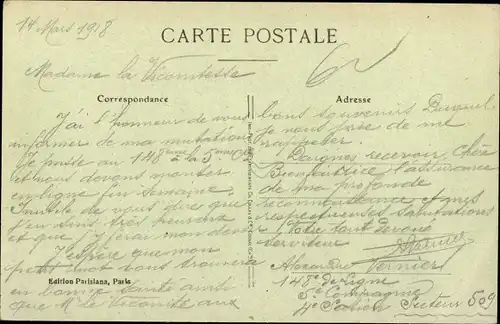 14 Mars 1918
CARTE POSTALE
Madame la Vicomtesse
Correspondance
Adresse
J'ai l'honneur de vous
informer de ma mutation
Je passe au 148ème à la 5ème Cie
et nous devons monter
en ligne fin semaine.
Inutile de vous dire que
j'en suis très heureux
et que je ferai mon devoir
J'espère que mon
petit mot vous trouvera
en bonne santé ainsi
que Mr le Vicomte aux
Edition Parisiana, Paris
bons souvenirs Duquel
je vous prie de me
rappeler.
Daignez recevoir, Chère
Bienfaitrice l'assurance
de ma profonde
reconnaissance et mes
respectueuses salutations
Votre tout dévoué
serviteur
Alexandre Vernier
148e de Ligne
5e Compagnie
Secteur 509